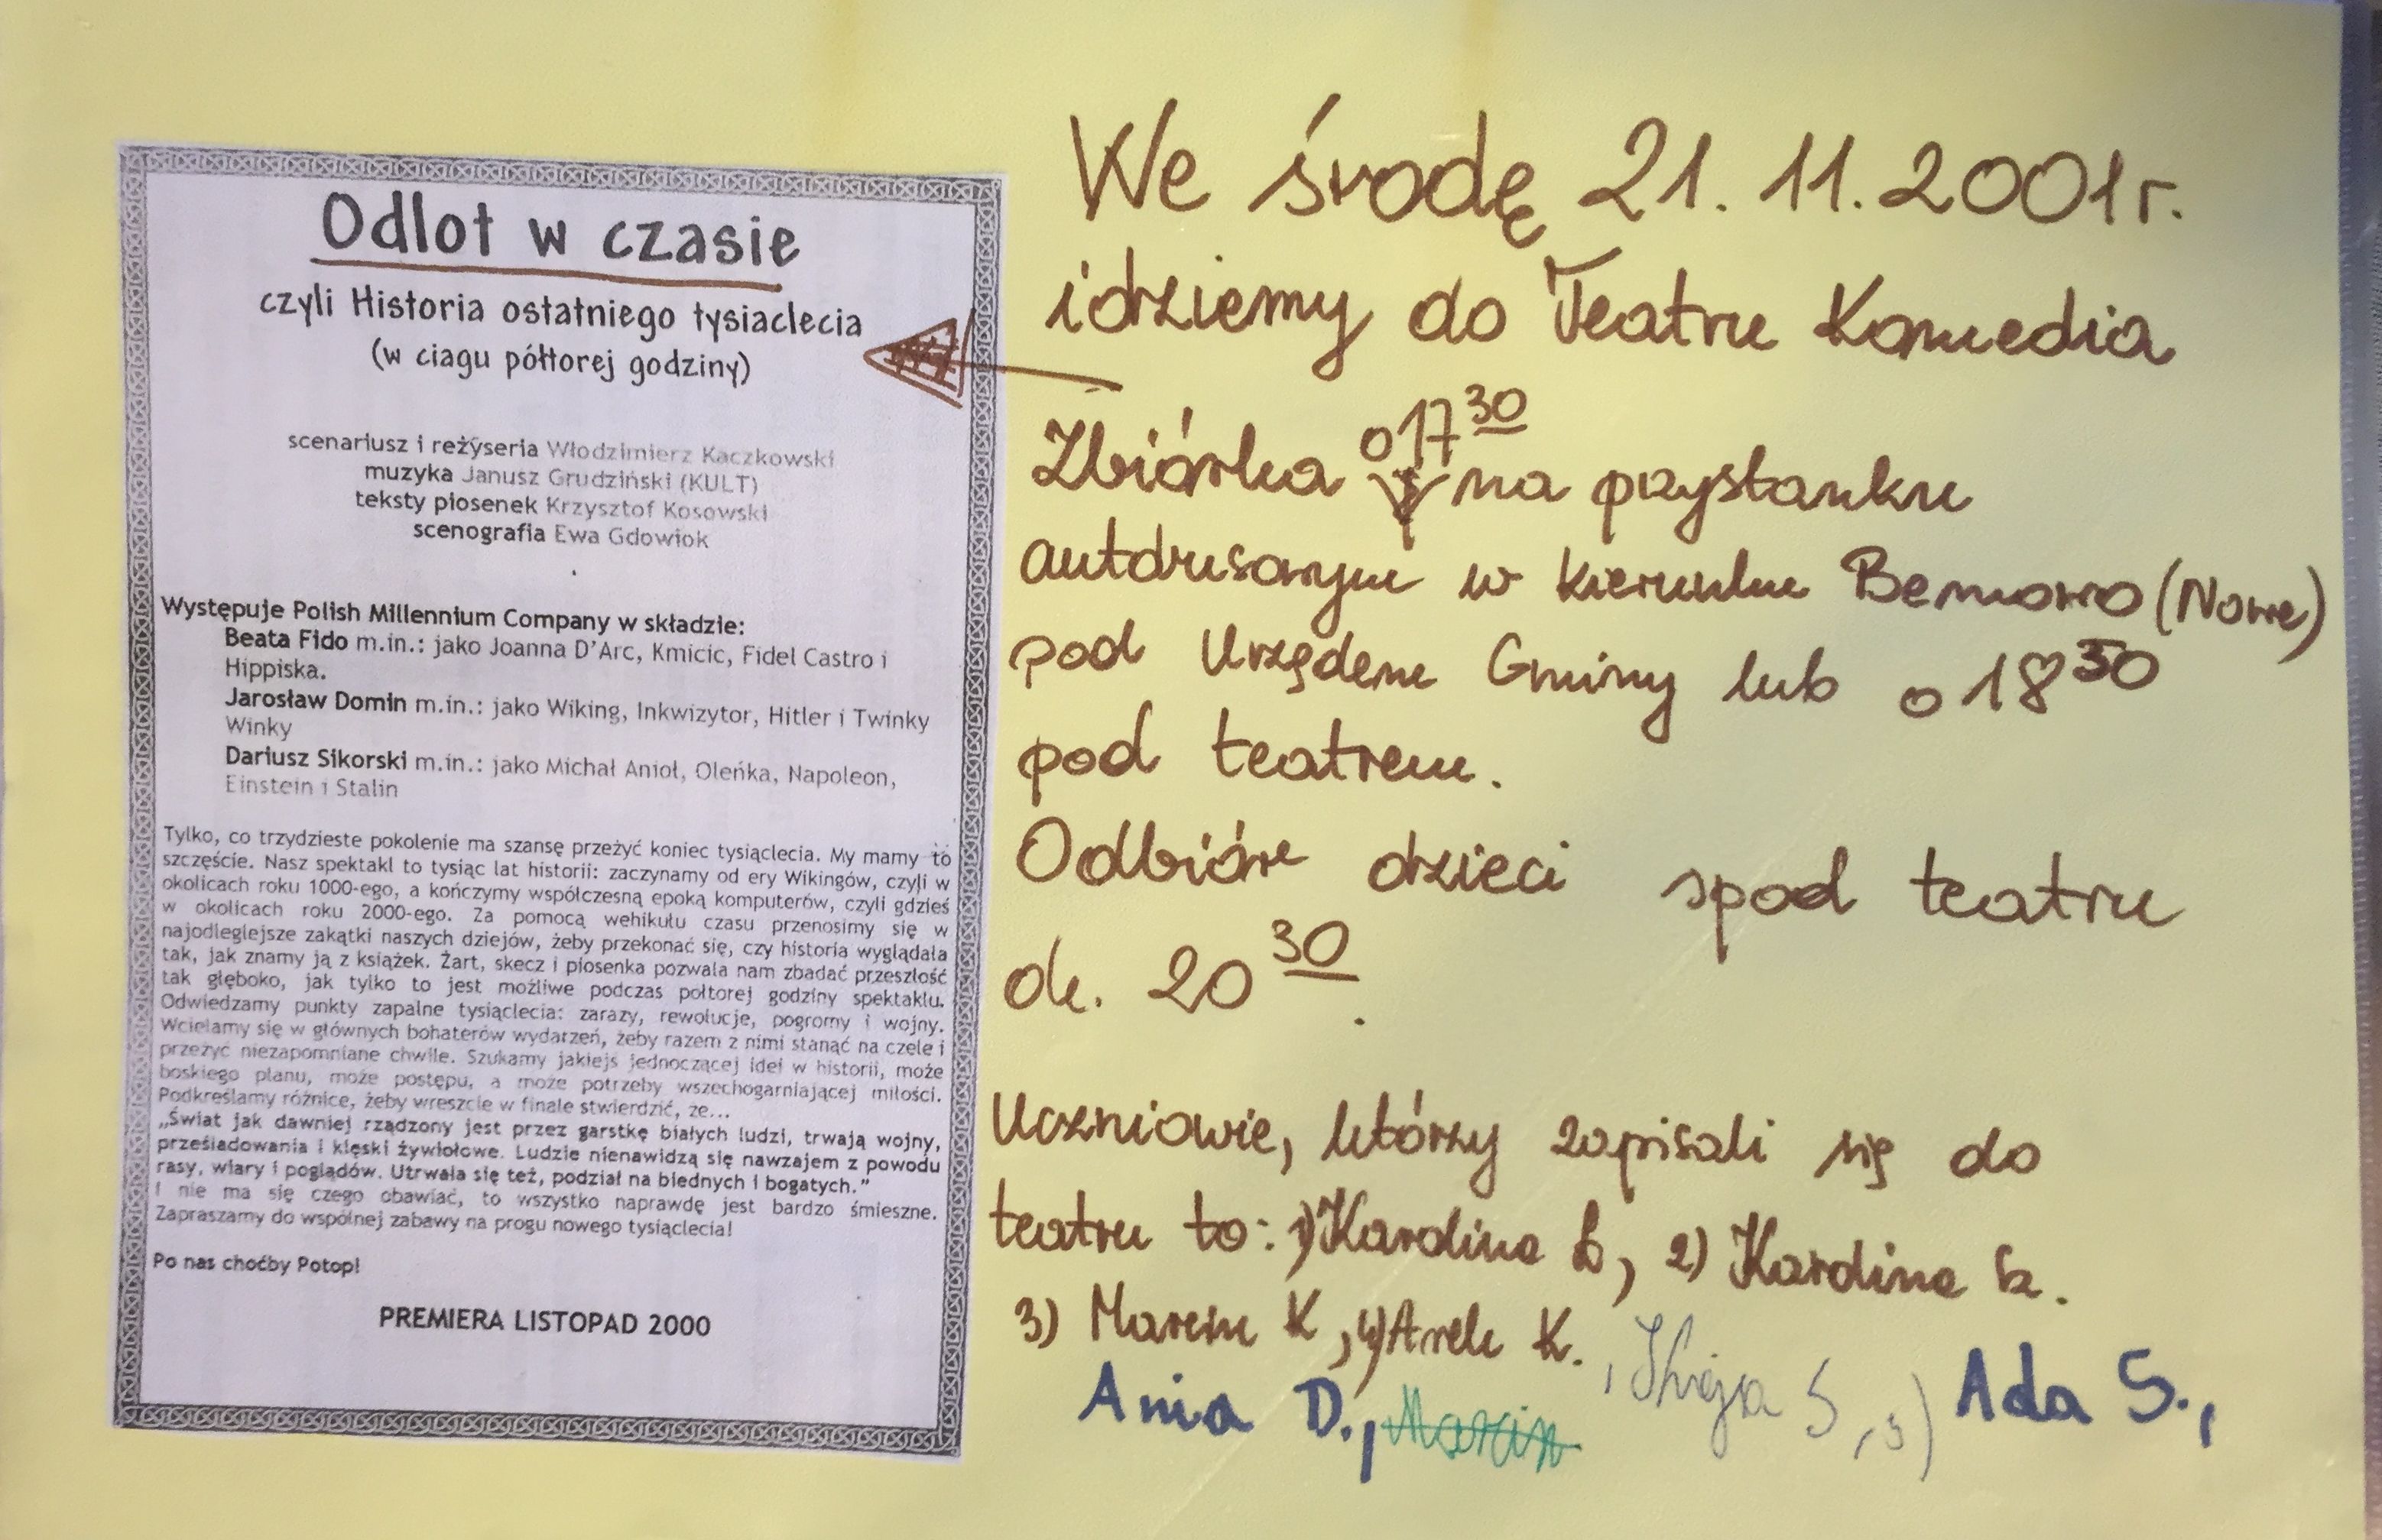 Odlot w czasie
czyli Historia ostatniego tysiaclecia
(w ciagu półtorej godziny)
scenariusz i reżyseria Włodzimierz Kaczkowski
muzyka Janusz Grudziński (KULT)
teksty piosenek Krzysztof Kosowski
scenografia Ewa Gdowiok
Występuje Polish Millennium Company w składzie:
Beata Fido m.in.: jako Joanna D'Arc, Kmicic, Fidel Castro i
Hippiska.
Jarosław Domin m.in.: jako Wiking, Inkwizytor, Hitler i Twinky
Winky
Dariusz Sikorski m.in.: jako Michał Anioł, Oleńka, Napoleon,
Einstein i Stalin
Tylko, co trzydzieste pokolenie ma szansę przeżyć koniec tysiąclecia. My mamy to
szczęście. Nasz spektakl to tysiąc lat historii: zaczynamy od ery Wikingów, czyli w
okolicach roku 1000-ego, a kończymy współczesną epoką komputerów, czyli gdzieś
w okolicach roku 2000-ego. Za pomocą wehikułu czasu przenosimy się w
najodleglejsze zakątki naszych dziejów, żeby przekonać się, czy historia wyglądała
tak, jak znamy ją z książek. Żart, skecz i piosenka pozwala nam zbadać przeszłość
tak głęboko, jak tylko to jest możliwe podczas półtorej godziny spektaklu.
Odwiedzamy punkty zapalne tysiąclecia: zarazy, rewolucje, pogromy i wojny.
Wcielamy się w głównych bohaterów wydarzeń, żeby razem z nimi stanąć na czele i
przeżyć niezapomniane chwile. Szukamy jakiejś jednoczącej idei w historii, może
boskiego planu, może postępu, a może potrzeby wszechogarniającej miłości.
Podkreślamy różnice, żeby wreszcie w finale stwierdzić, że...
„Świat jak dawniej rządzony jest przez garstkę białych ludzi, trwają wojny,
prześladowania i klęski żywiołowe. Ludzie nienawidzą się nawzajem z powodu
rasy, wiary i poglądów. Utrwala się też, podział na biednych i bogatych."
I nie ma się czego obawiać, to wszystko naprawdę jest bardzo śmieszne.
Zapraszamy do wspólnej zabawy na progu nowego tysiąclecia!
Po nas choćby Potop!
PREMIERA LISTOPAD 2000
We środę 21.11.2001r.
idziemy do Teatru Komedia
Zbiórka o 17³⁰ na przystanku
autobusowym w kierunku Bemowo (Nowe)
pod Urzędem Gminy lub o 18³⁰
pod teatrem.
Odbiór dzieci spod teatru
ok. 20³⁰.
Uczniowie, którzy zapisali się do
teatru to: 1) Karolina Ł, 2) Karolina
3) Marcin K, 4) Arek K.
, S, 5) Ada S.,
Ania D., Marcin